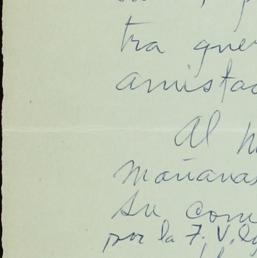 tra que
amistad
Al h
mañanas
su com
por la F. V. ly